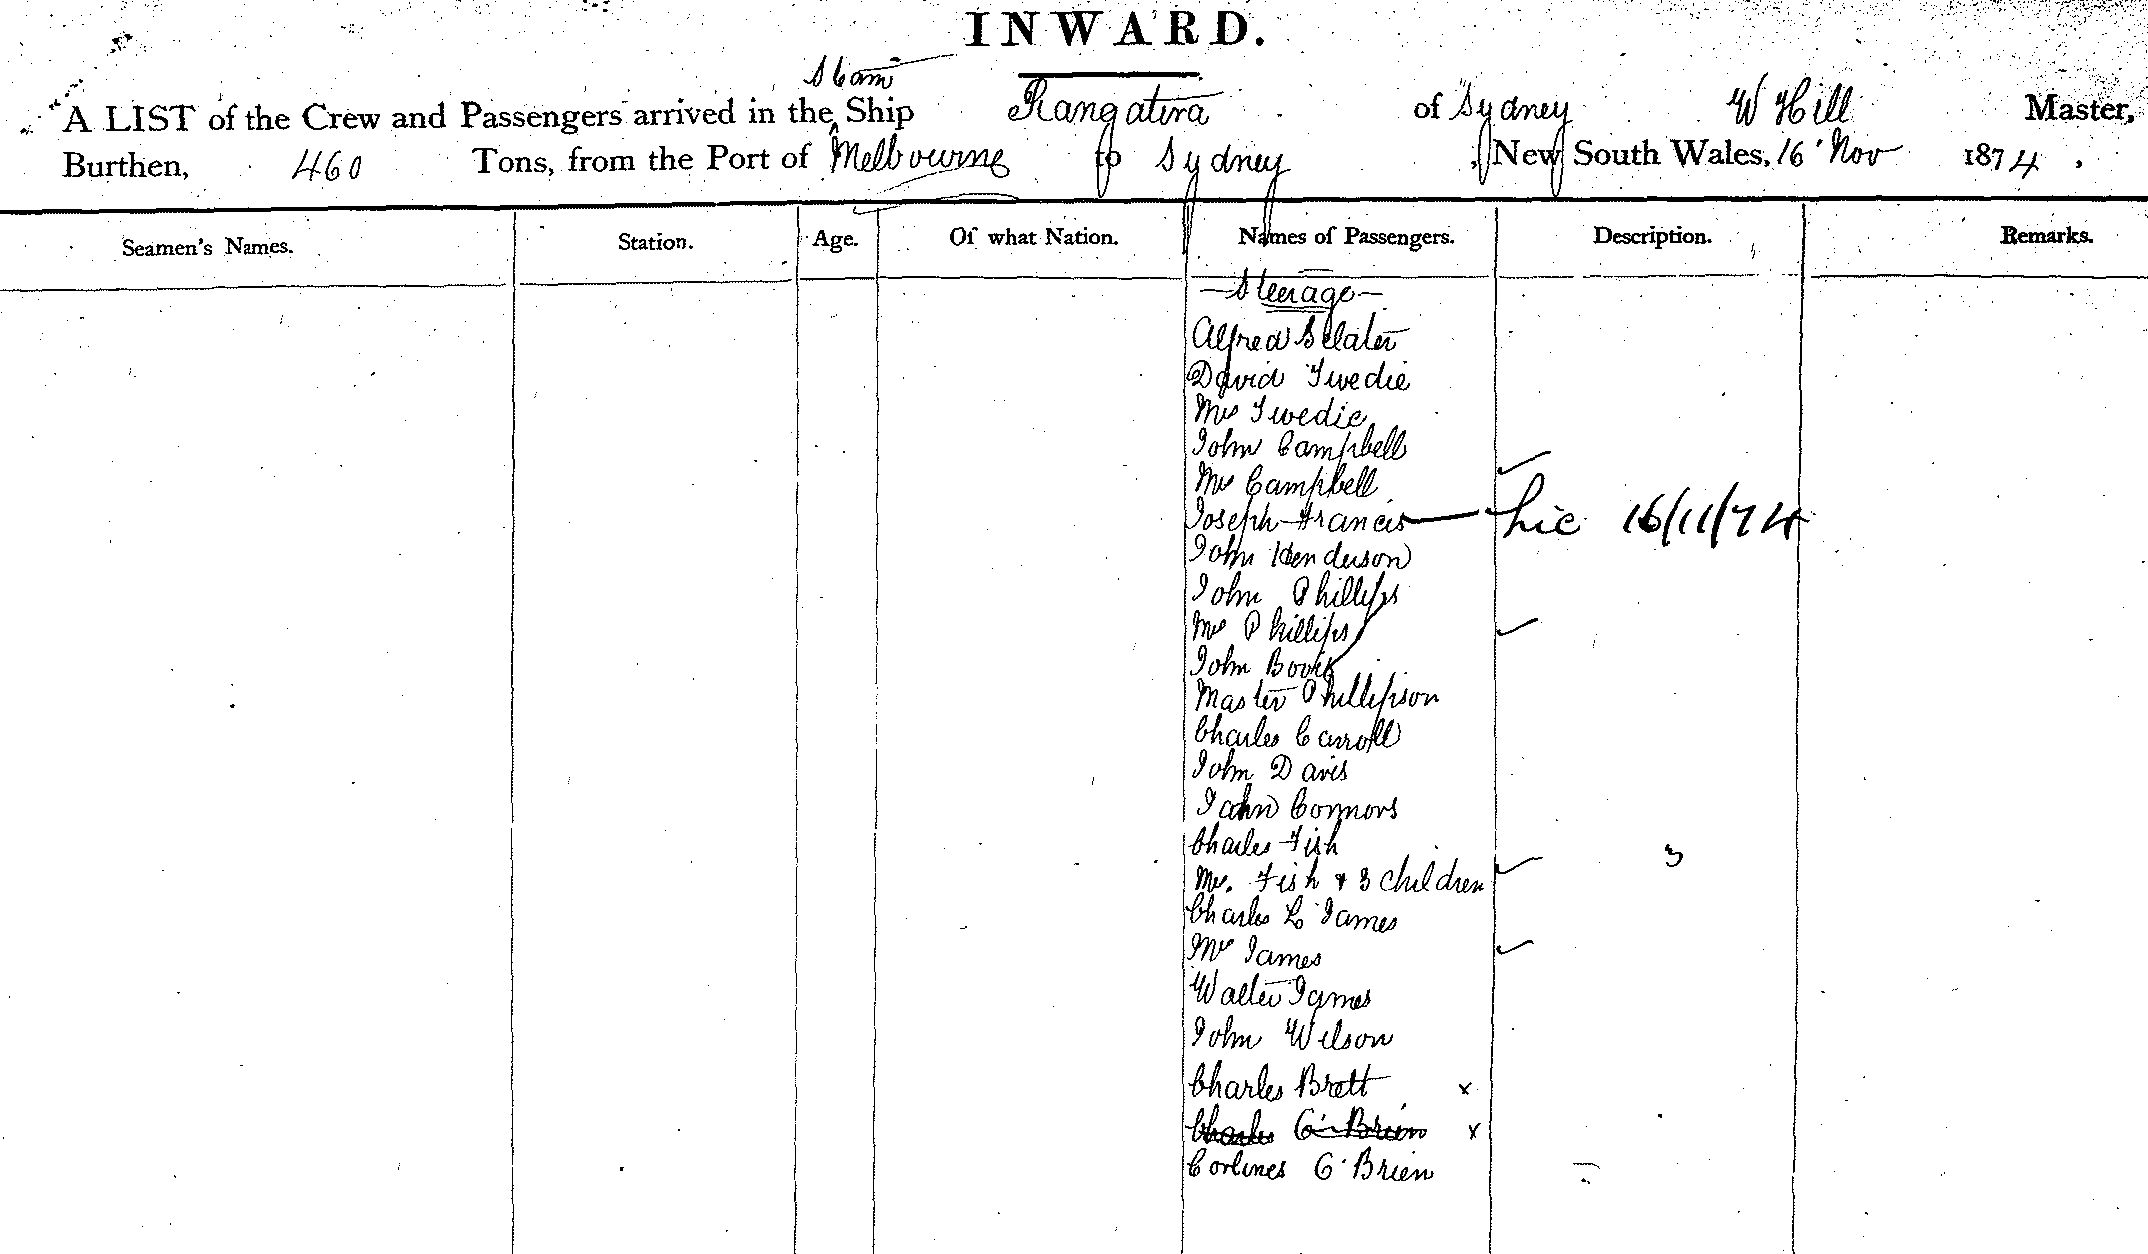 INWARD.
Steam
A LIST of the Crew and Passengers arrived in the Ship Rangatira of Sydney W Hill Master,
Burthen, 460 Tons, from the Port of Melbourne to Sydney, New South Wales, 16 Nov 1874.
Seamen's Names. Station. Age. Of what Nation. Names of Passengers. Description. Remarks.
— Steerage —
Alfred Slater
David Twedie
Mrs Twedie
John Campbell
Mrs Campbell
Joseph Francis — 16/11/74
John Henderson
John Phillips
Mrs Phillips
John
Master Phillipson
Charles Carroll
John Davis
John Connors
Charles Fish 3
Mrs. Fish & 3 children
Charles L James
Mrs James
Walter James
John Wilson
Charles Brett x
Charles O'Brien x
O'Brien